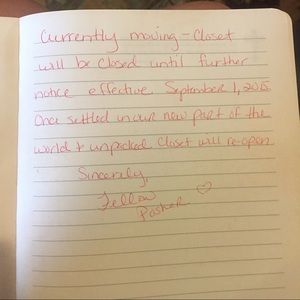 Currently moving - Closet
will be closed until further
notice effective September 1, 2015
Once settled in our new part of the
world + unpacked closet will re-open
Sincerely,
Fellow
Posher ♡